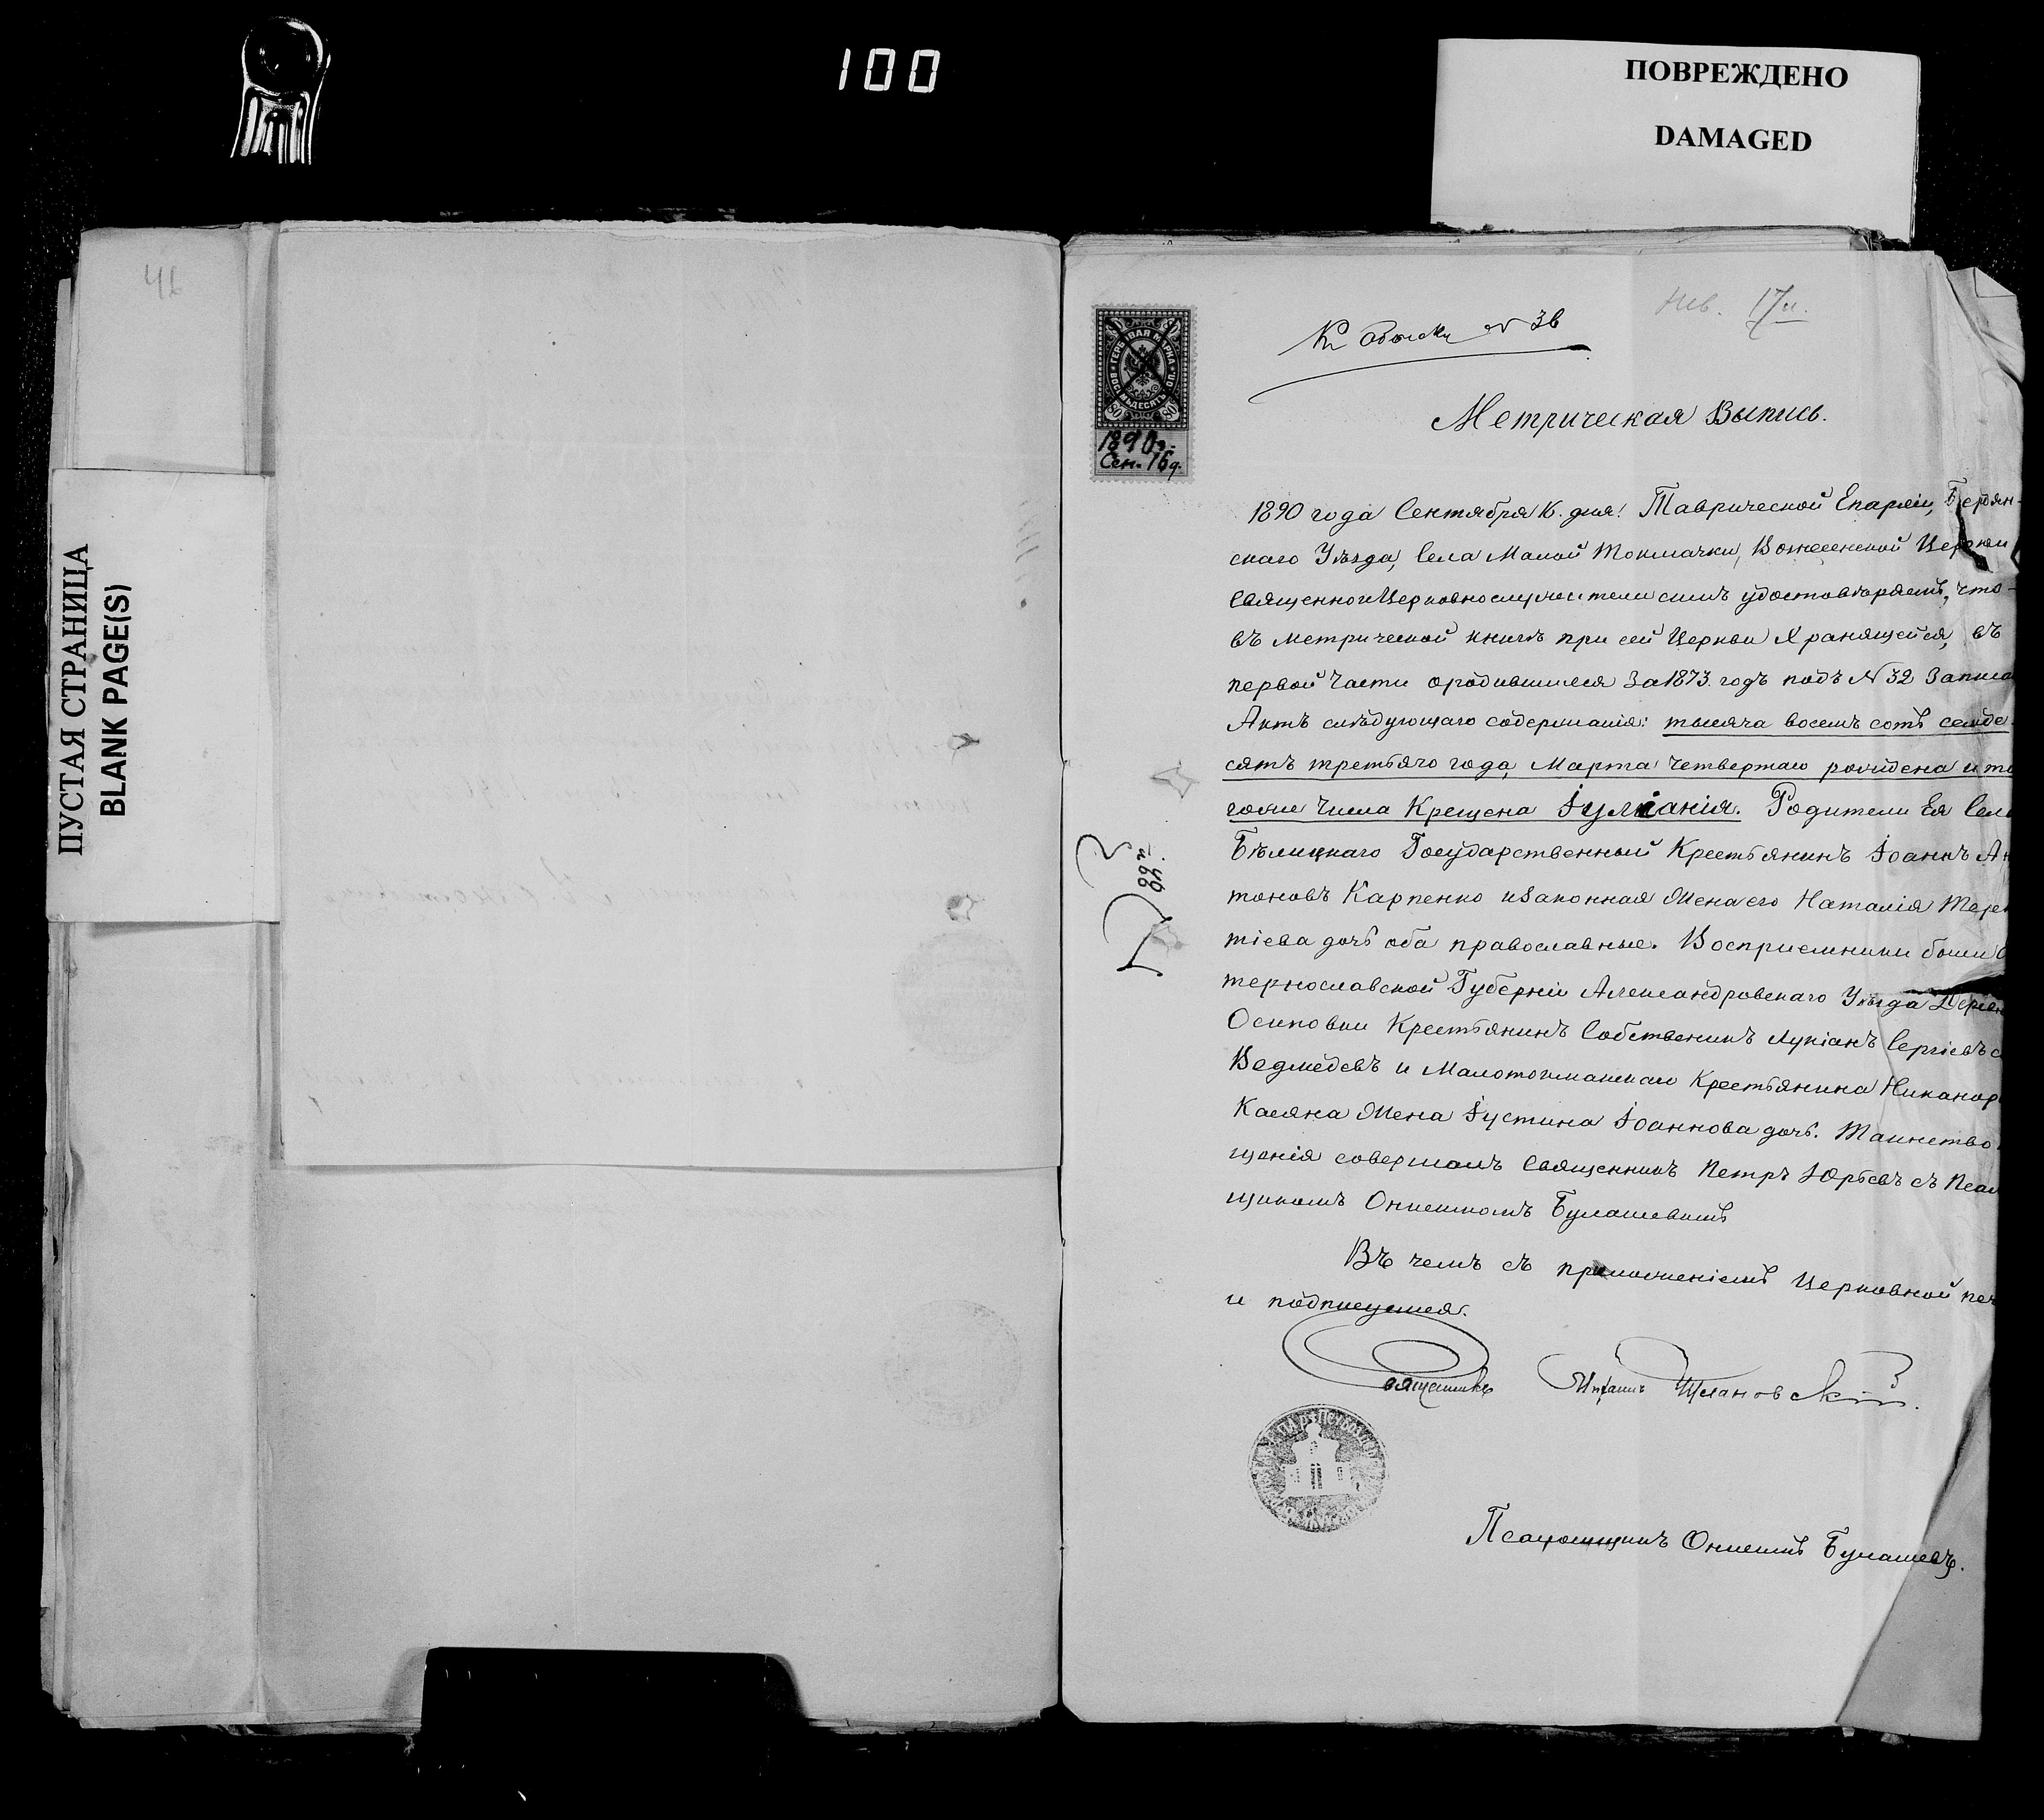 100
ПОВРЕЖДЕНО
DAMAGED
ПУСТАЯ СТРАНИЦА
BLANK PAGE(S)
ГЕРБОВАЯ МАРКА
ВОСЕМЬДЕСЯТЬ КОП.
80 80
1890 г.
Сен. 16 д.
Къ обыску № 36
Метрическая Выпись.
1890 года Сентября 16. дня. Таврической Епархіи, Бердян-
скаго Уѣзда, Села Малой Токмачки, Вознесенской Церкви
Священно и Церковнослужители симъ удостовѣряемъ, что
въ метрической книгѣ при сей Церкви Хранящейся, въ
первой Части о родившихся За 1873. годъ подъ № 32 Записа
Актъ слѣдующаго содержанія: тысяча восемь сотъ семьде
сятъ третьяго года, Марта четвертаго рождена и то
гоже Числа Крещена Іуліанія. Родители Ея Села
Бѣлицкаго Государственный Крестьянинъ Іоаннъ Ан
тоновъ Карпенко и Законная Жена его Наталія Терен
тіева дочь оба православные. Восприемники были
теринославской Губерніи Александровскаго Уѣзда Дерев
Осиповки Крестьянинъ Собственникъ Лукіанъ Сергіевъ с
Ведмедевъ и Малотокмацкаго Крестьянина Никанор
Касяна Жена Іустина Іоаннова дочь. Таинство
щенія совершалъ Священникъ Петръ Юрьевъ съ Псал
щикомъ Онисимомъ Булашевымъ
Въ чемъ съ приложеніемъ Церковной печ
и подпишемся.
Священникъ
Псаломщикъ Онисимъ Булашевъ.